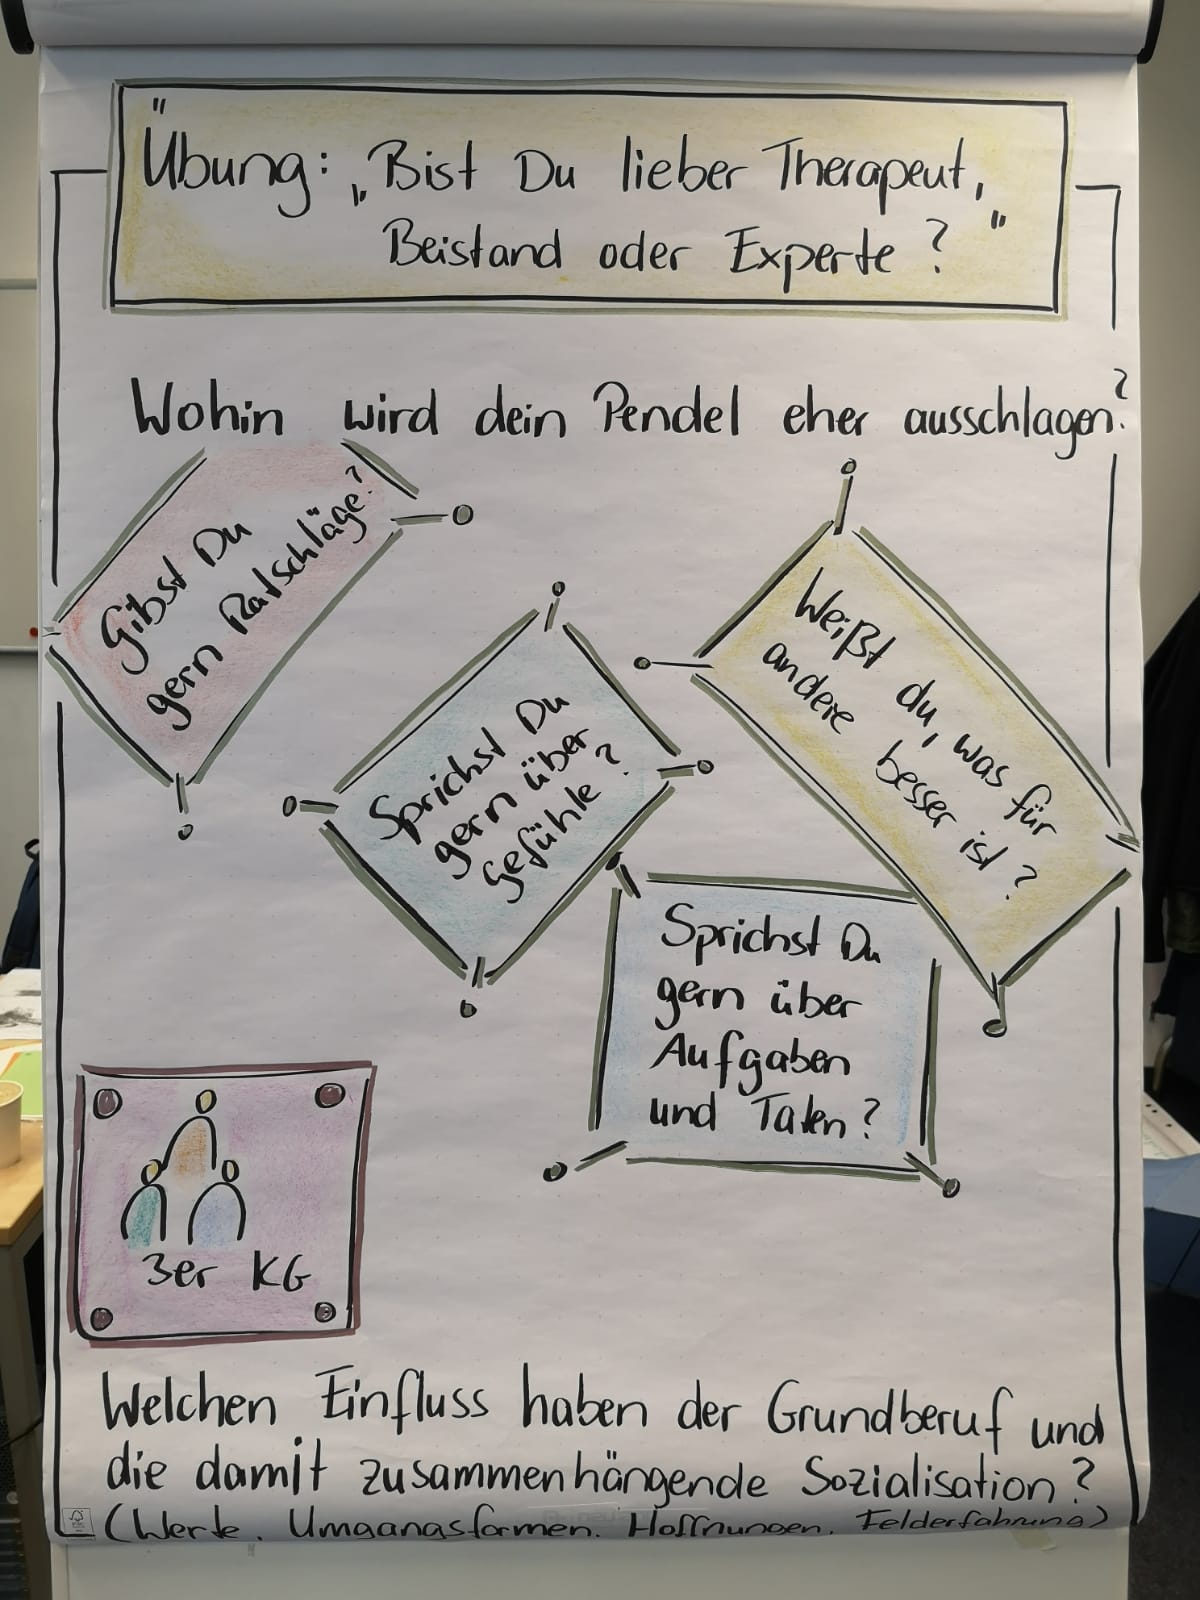 Übung: „Bist Du lieber Therapeut,
Beistand oder Experte?"
Wohin wird dein Pendel eher ausschlagen?
Gibst Du
gern Ratschläge?
Sprichst Du
gern über
Gefühle?
Weißt du, was für
andere besser ist?
Sprichst Du
gern über
Aufgaben
und Taten?
3er KG
Welchen Einfluss haben der Grundberuf und
die damit zusammenhängende Sozialisation?
(Werte, Umgangsformen, Hoffnungen, Felderfahrung)